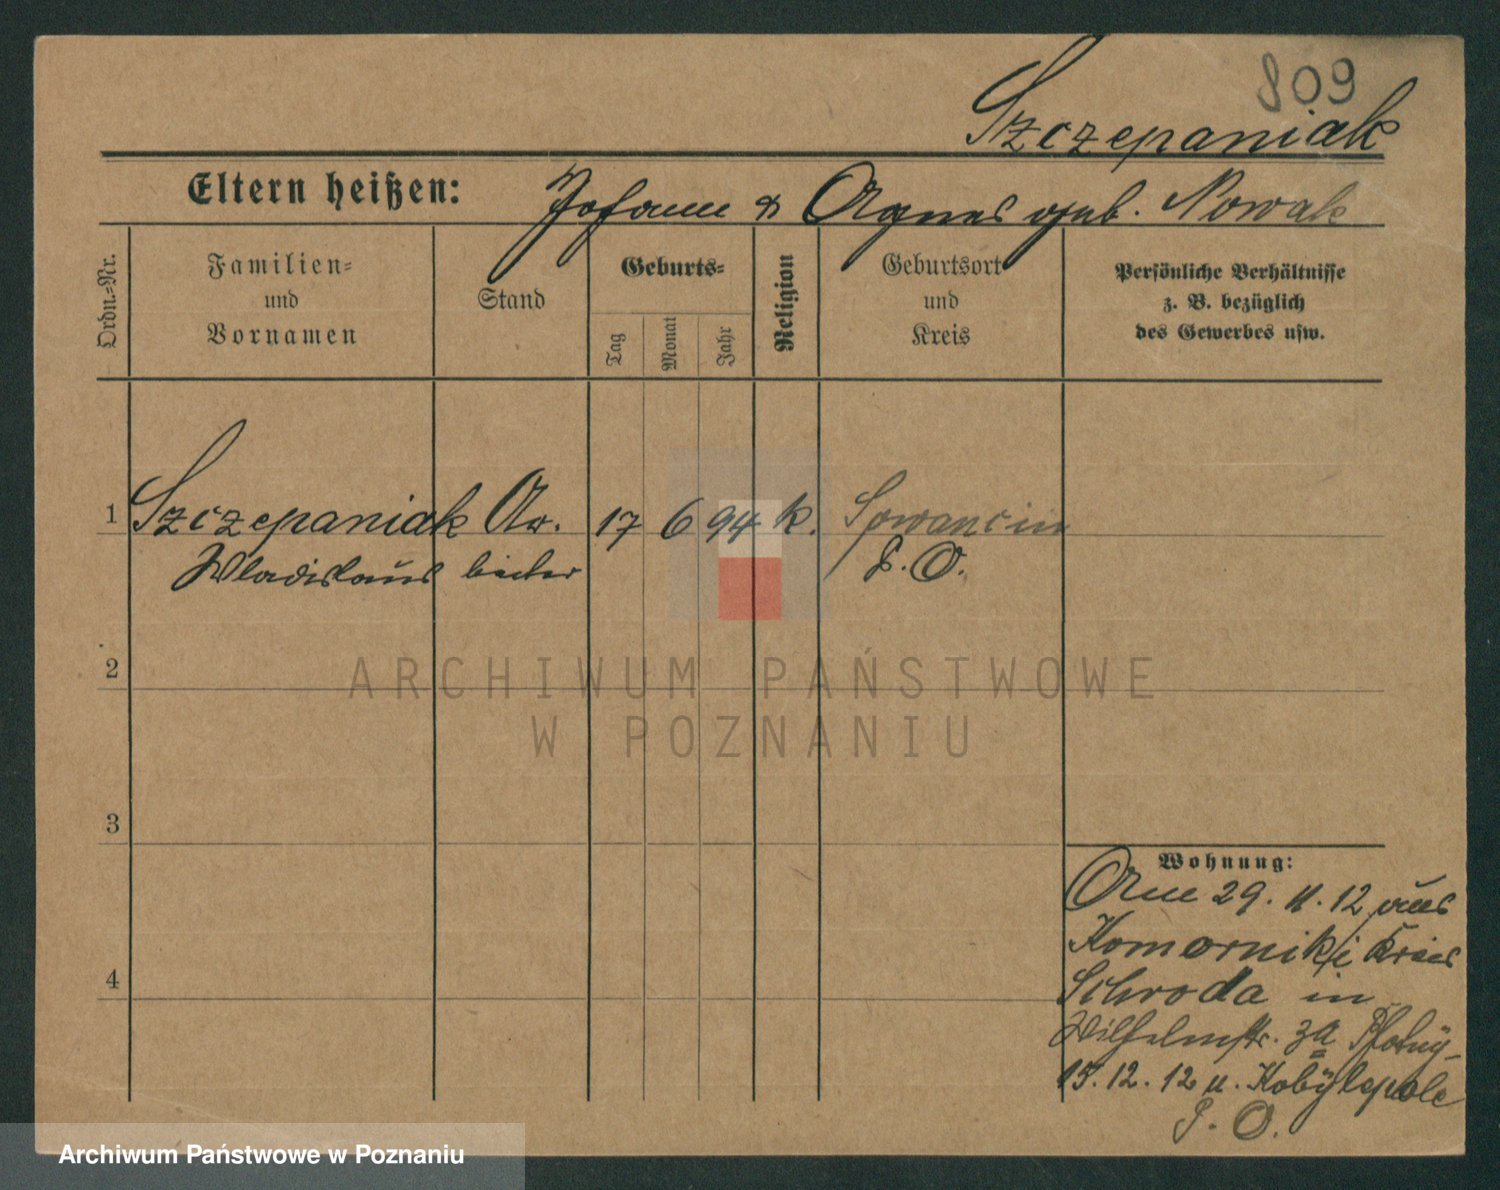 809
Szczepaniak
Eltern heißen: Johann & Agnes geb. Nowak
Ordn.-Nr.
Familien-
und
Vornamen
Stand
Geburts-
Tag
Monat
Jahr
Religion
Geburtsort
und
Kreis
Persönliche Verhältnisse
z. B. bezüglich
des Gewerbes usw.
1 Szczepaniak Ar. 17 6 94 k. Sowancin
Wladislaus beiter P. O.
2
ARCHIWUM PAŃSTWOWE
W POZNANIU
3
4
Wohnung:
Am 29. 11. 12 aus
Komorniki Kreis
Schroda in
Wilhelmstr. 3a
15. 12. 12 n. Kobylepole
P. O.
Archiwum Państwowe w Poznaniu